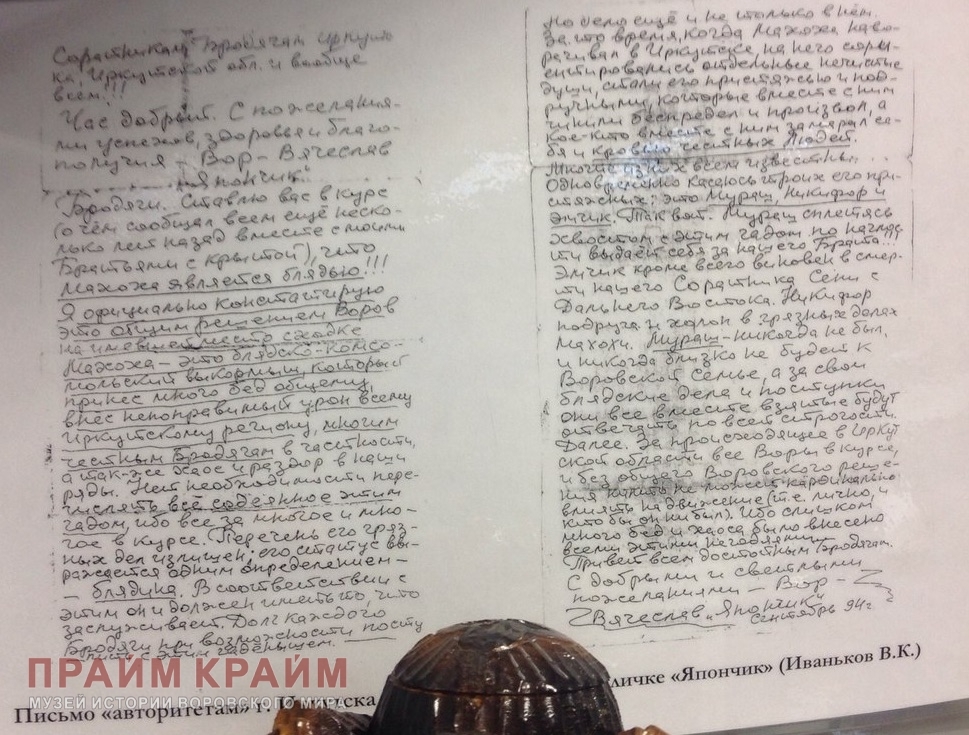 Соратникам, Бродягам Иркутс-
ка, Иркутской обл. и вообще
всем!!!
Час добрый. С пожелания-
ми успехов, здоровья и благо-
получия – Вор – Вячеслав
"Япончик".
Бродяги. Ставлю вас в курс
(о чём сообщал всем ещё неско-
лько лет назад вместе с моими
Братьями с крытой), что
Махоха является блядью!!!
Я официально констатирую
это общим решением Воров
на имевшем место сходке
Махоха – это блядско-комсо-
мольский выкормыш, который
принёс много бед общему,
внёс непоправимый урон всему
Иркутскому региону, многим
честным Бродягам в частности,
а так-же хаос и раздор в наши
ряды. Нет необходимости пере-
числять всё содеянное этим
гадом, ибо все за многое и мно-
гое в курсе. Перечень его гряз-
ных дел излишен; его статус вы-
ражается одним определением –
– блядина. В соответствии с
этим он и должен иметь то, что
заслуживает. Долг каждого
Бродяги при возможности посту
пить с этим гадёнышем.
Но дело ещё и не только в нём.
За то время, когда Махоха наво-
рачивал в Иркутске, на него
отдельные нечистые
души, стали его пристяжью и под-
ручными, которые вместе с ним
чинили беспредел и произвол, а
кое-кто вместе с ним замарал се-
бя и кровью честных Людей.
Многие из них всем известны...
Одновременно касаюсь троих его при-
стяжных; это Мураш, Никифор и
Эмчик. Так вот. Мураш сплетясь
хвостом с этим гадом по наглос
ти выдаёт себя за нашего Брата...!!!
Эмчик кроме всего виновен в смер-
ти нашего Соратника Сени с
Дальнего Востока. Никифор
подруга и холоп в грязных делах
Махохи. Мураш – никогда не был,
и никогда близко не будет к
Воровской Семье, а за свои
блядские дела и поступки
они все вместе взятые будут
отвечать по всей строгости.
Далее. За происходящее в Иркут
ской области все Воры в курсе,
и без общего Воровского реше-
ния никто не может кардинально
влиять на движение (т.е. лично, и
кто бы он ни был). Ибо слишком
много бед и хаоса было внесено
всеми этими негодяями.
Привет всем достойным Бродягам.
С добрыми и светлыми
пожеланиями – Вор –
Вячеслав "Япончик"
Сентябрь 94г
ПРАЙМ КРАЙМ
МУЗЕЙ ИСТОРИИ ВОРОВСКОГО МИРА
Письмо «авторитетам» г. личке «Япончик» (Иваньков В.К.)